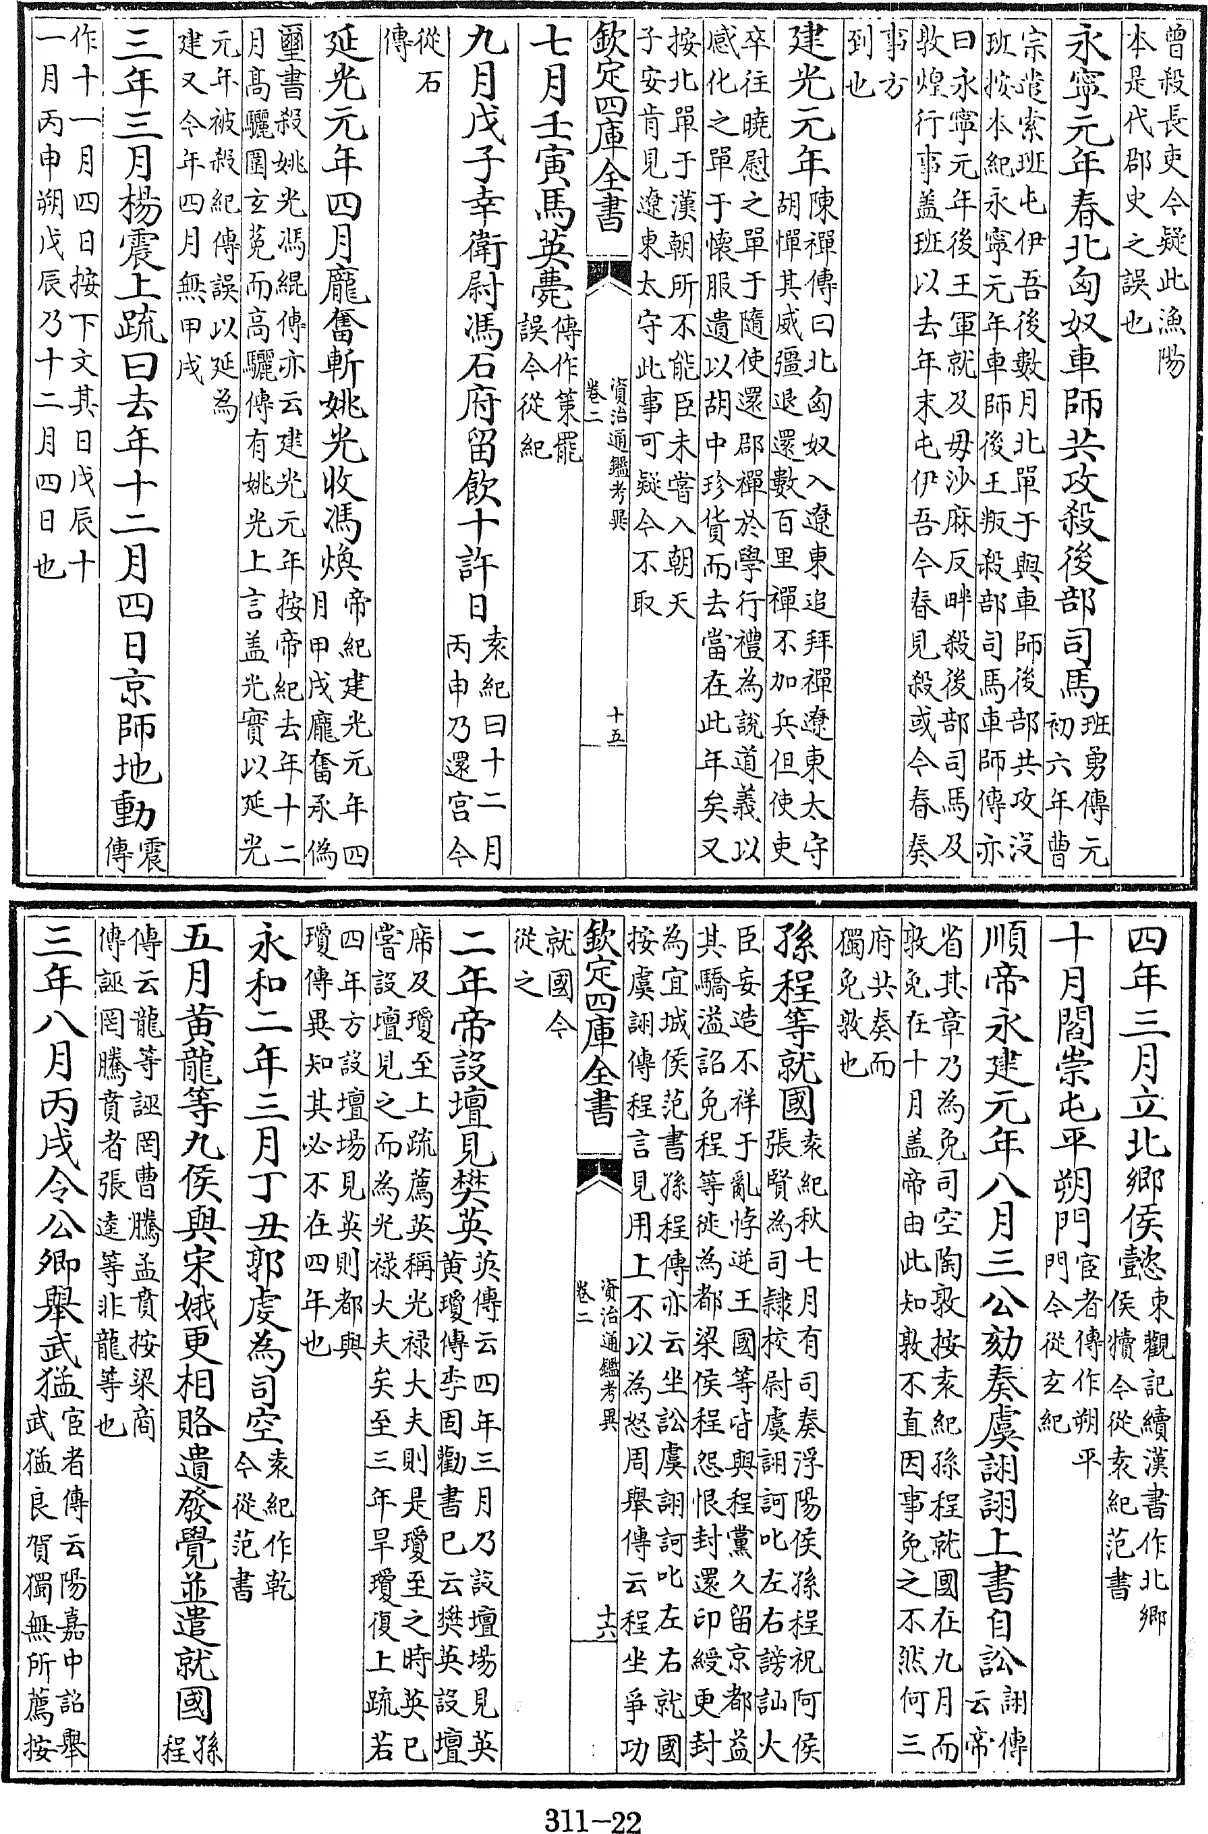 曾殺長吏今疑此漁陽
本是代郡史之誤也
永寧元年春北匈奴車師共攻殺後部司馬
班勇傳元
初六年曹
宗遣索班屯伊吾後數月北單于與車師後部共攻没
班按本紀永寧元年車師後王叛殺部司馬車師傳亦
曰永寧元年後王軍就及毋沙麻反畔殺後部司馬及
敦煌行事盖班以去年末屯伊吾今春見殺或今春奏
事方
到也
建光元年
陳禪傳曰北匈奴入遼東追拜禪遼東太守
胡憚其威彊退還數百里禪不加兵但使吏
卒往曉慰之單于隨使還郡禪於學行禮為説道義以
感化之單于懷服遺以胡中珍貨而去當在此年矣又
按北單于漢朝所不能臣未嘗入朝天
子安肯見遼東太守此事可疑今不取
欽定四庫全書
資治通鑑考異
卷二
十五
七月壬寅馬英薨
傳作策罷
誤今從紀
九月戊子幸衛尉馮石府留飲十許日
袁紀曰十二月
丙申乃還宫今
從石
傳
延光元年四月龐奮斬姚光收馮煥
帝紀建光元年四
月甲戌龐奮承偽
璽書殺姚光馮緄傳亦云建光元年按帝紀去年十二
月髙驪圍玄菟而高驪傳有姚光上言盖光實以延光
元年被殺紀傳誤以延為
建又今年四月無甲戌
三年三月楊震上疏曰去年十二月四日京師地動
震
傳
作十一月四日按下文其日戊辰十
一月丙申朔戊辰乃十二月四日也
四年三月立北鄉侯懿
東觀記續漢書作北鄉
侯犢今從袁紀范書
十月閻崇屯平朔門
宦者傳作朔平
門今從玄紀
順帝永建元年八月三公劾奏虞詡詡上書自訟
詡傳
云帝
省其章乃為免司空陶敦按袁紀孫程就國在九月而
敦免在十月盖帝由此知敦不直因事免之不然何三
府共奏而
獨免敦也
孫程等就國
袁紀秋七月有司奏浮陽侯孫程祝阿侯
張賢為司隸校尉虞詡訶叱左右謗訕火
臣妄造不祥于亂悖逆王國等皆與程黨久留京都益
其驕溢詔免程等徙為都梁侯程怨恨封還印綬更封
為宜城侯范書孫程傳亦云坐訟虞詡訶叱左右就國
按虞詡傳程言見用上不以為怒周舉傳云程坐爭功
欽定四庫全書
資治通鑑考異
卷二
十六
就國今
從之
二年帝設壇見樊英
英傳云四年三月乃設壇場見英
黄瓊傳李固勸書已云樊英設壇
席及瓊至上疏薦英稱光禄大夫則是瓊至之時英已
嘗設壇見之而為光禄大夫矣至三年旱瓊復上疏若
四年方設壇場見英則都與
瓊傳異知其必不在四年也
永和二年三月丁丑郭虔為司空
袁紀作乾
今從范書
五月黄龍等九侯與宋娥更相賂遺發覺並遣就國
孫
程
傳云龍等誣罔曹騰孟賁按梁商
傳誣罔騰賁者張逵等非龍等也
三年八月丙戌令公卿舉武猛
宦者傳云陽嘉中詔舉
武猛良賀獨無所薦按
311-22